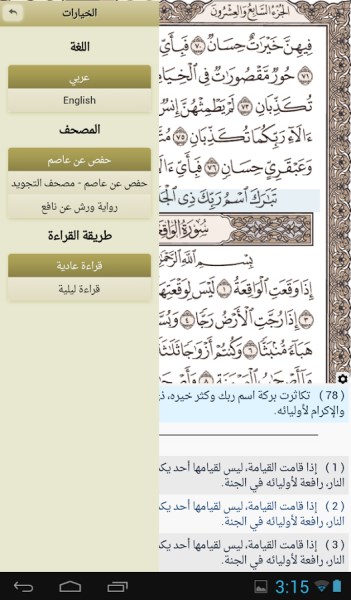 الخيارات
اللغة
عربي
English
المصحف
حفص عن عاصم
حفص عن عاصم - مصحف التجويد
رواية ورش عن نافع
طريقة القراءة
قراءة عادية
قراءة ليلية
الجزء السابع والعشرون
فِيهِنَّ خَيْرَاتٌ حِسَانٌ ٧٠ فَبِأَيِّ
٧١ حُورٌ مَّقْصُورَاتٌ فِي الْخِيَا
تُكَذِّبَانِ ٧٣ لَمْ يَطْمِثْهُنَّ إِنسٌ
ءَالَاءِ رَبِّكُمَا تُكَذِّبَانِ ٧٥
وَعَبْقَرِيٍّ حِسَانٍ ٧٦ فَبِأَيِّ ءَالَا
تَبَارَكَ اسْمُ رَبِّكَ ذِي الْجَ
سُورَةُ الْوَاقِعَ
بِسْمِ اللَّهِ الرَّحْمَٰنِ
إِذَا وَقَعَتِ الْوَاقِعَةُ ١ لَيْسَ لِوَقْعَتِهَا
٣ إِذَا رُجَّتِ الْأَرْضُ رَجًّا ٤ وَبُسَّ
هَبَاءً مُّنبَثًّا ٦ وَكُنتُمْ أَزْوَاجًا ثَلَاثَ
وَأَصْحَ ٨
( 78 ) تكاثرت بركة اسم ربك وكثر خيره، ذي
والإكرام لأوليائه.
( 1 ) إذا قامت القيامة، ليس لقيامها أحد يك
النار، رافعة لأوليائه في الجنة.
( 2 ) إذا قامت القيامة، ليس لقيامها أحد يك
النار، رافعة لأوليائه في الجنة.
( 3 ) إذا قامت القيامة، ليس لقيامها أحد يك
النار، رافعة لأوليائه في الجنة.
3:15